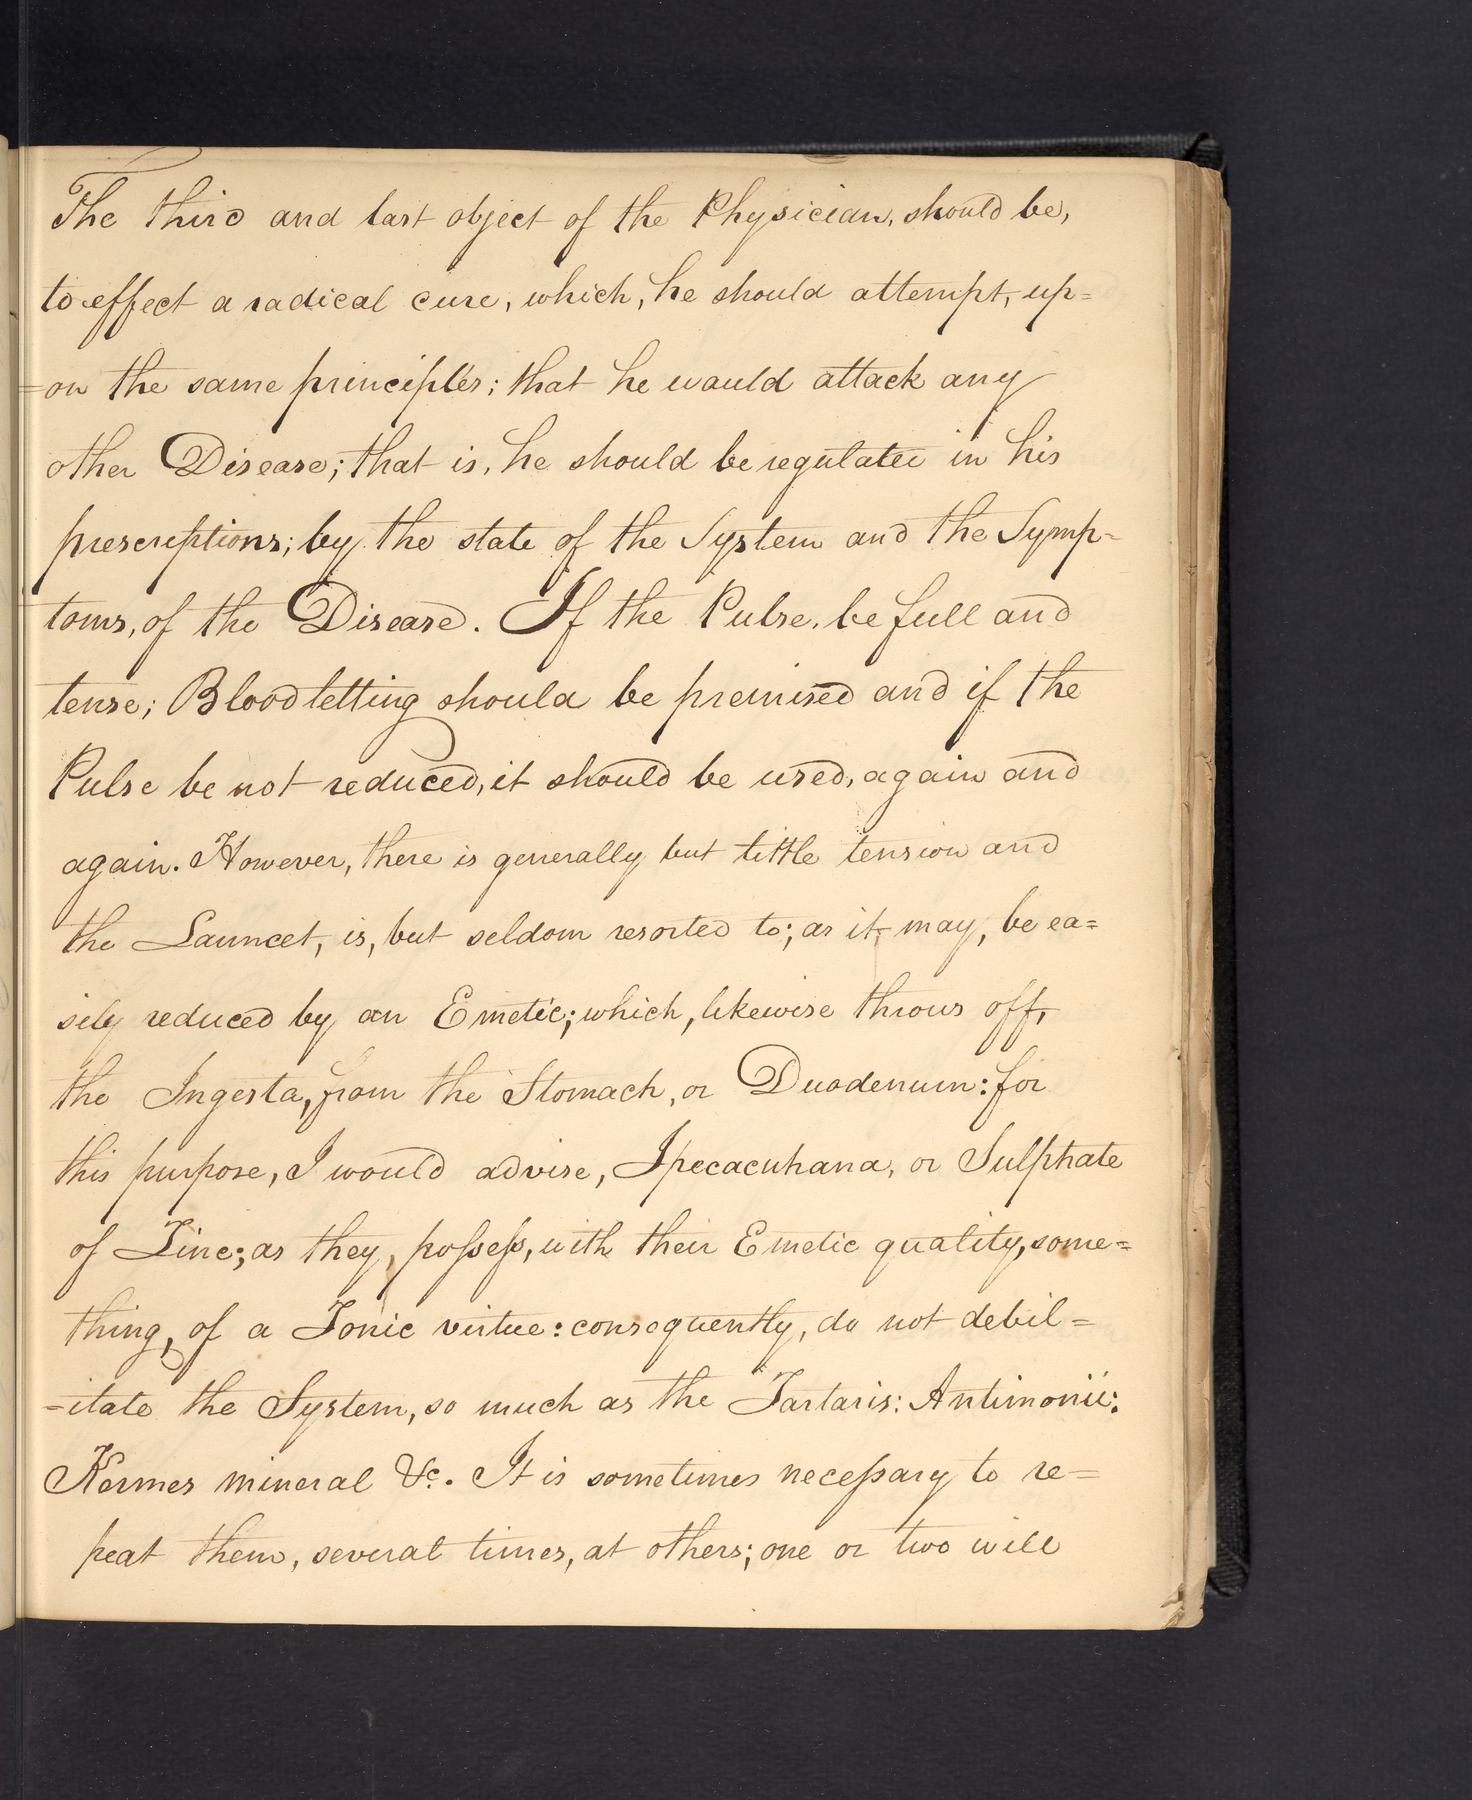 The third and last object of the Physician, should be,
to effect a radical cure, which, he should attempt, up=
=on the same principles; that he would attack any
other Disease; that is, he should be regulated in his
prescriptions; by the state of the System and the Symp-
toms, of the Disease. If the Pulse, be full and
tense; Bloodletting should be premised and if the
Pulse be not reduced, it should be used, again and
again. However, there is generally but little tension and
the Launcet, is, but seldom resorted to; as it may, be ea=
sily reduced by an Emetic; which, likewise throws off,
the Ingesta, from the Stomach, or Duodenum: for
this purpose, I would advise, Ipecacuhana, or Sulphate
of Zinc; as they, poſseſs, with their Emetic quality, some=
thing, of a Tonic virtue: consequently, do not debil=
-itate the System, so much as the Tartaris: Antimonii:
Kermes mineral &c. It is sometimes neceſsary to re=
peat them, several times, at others; one or two will